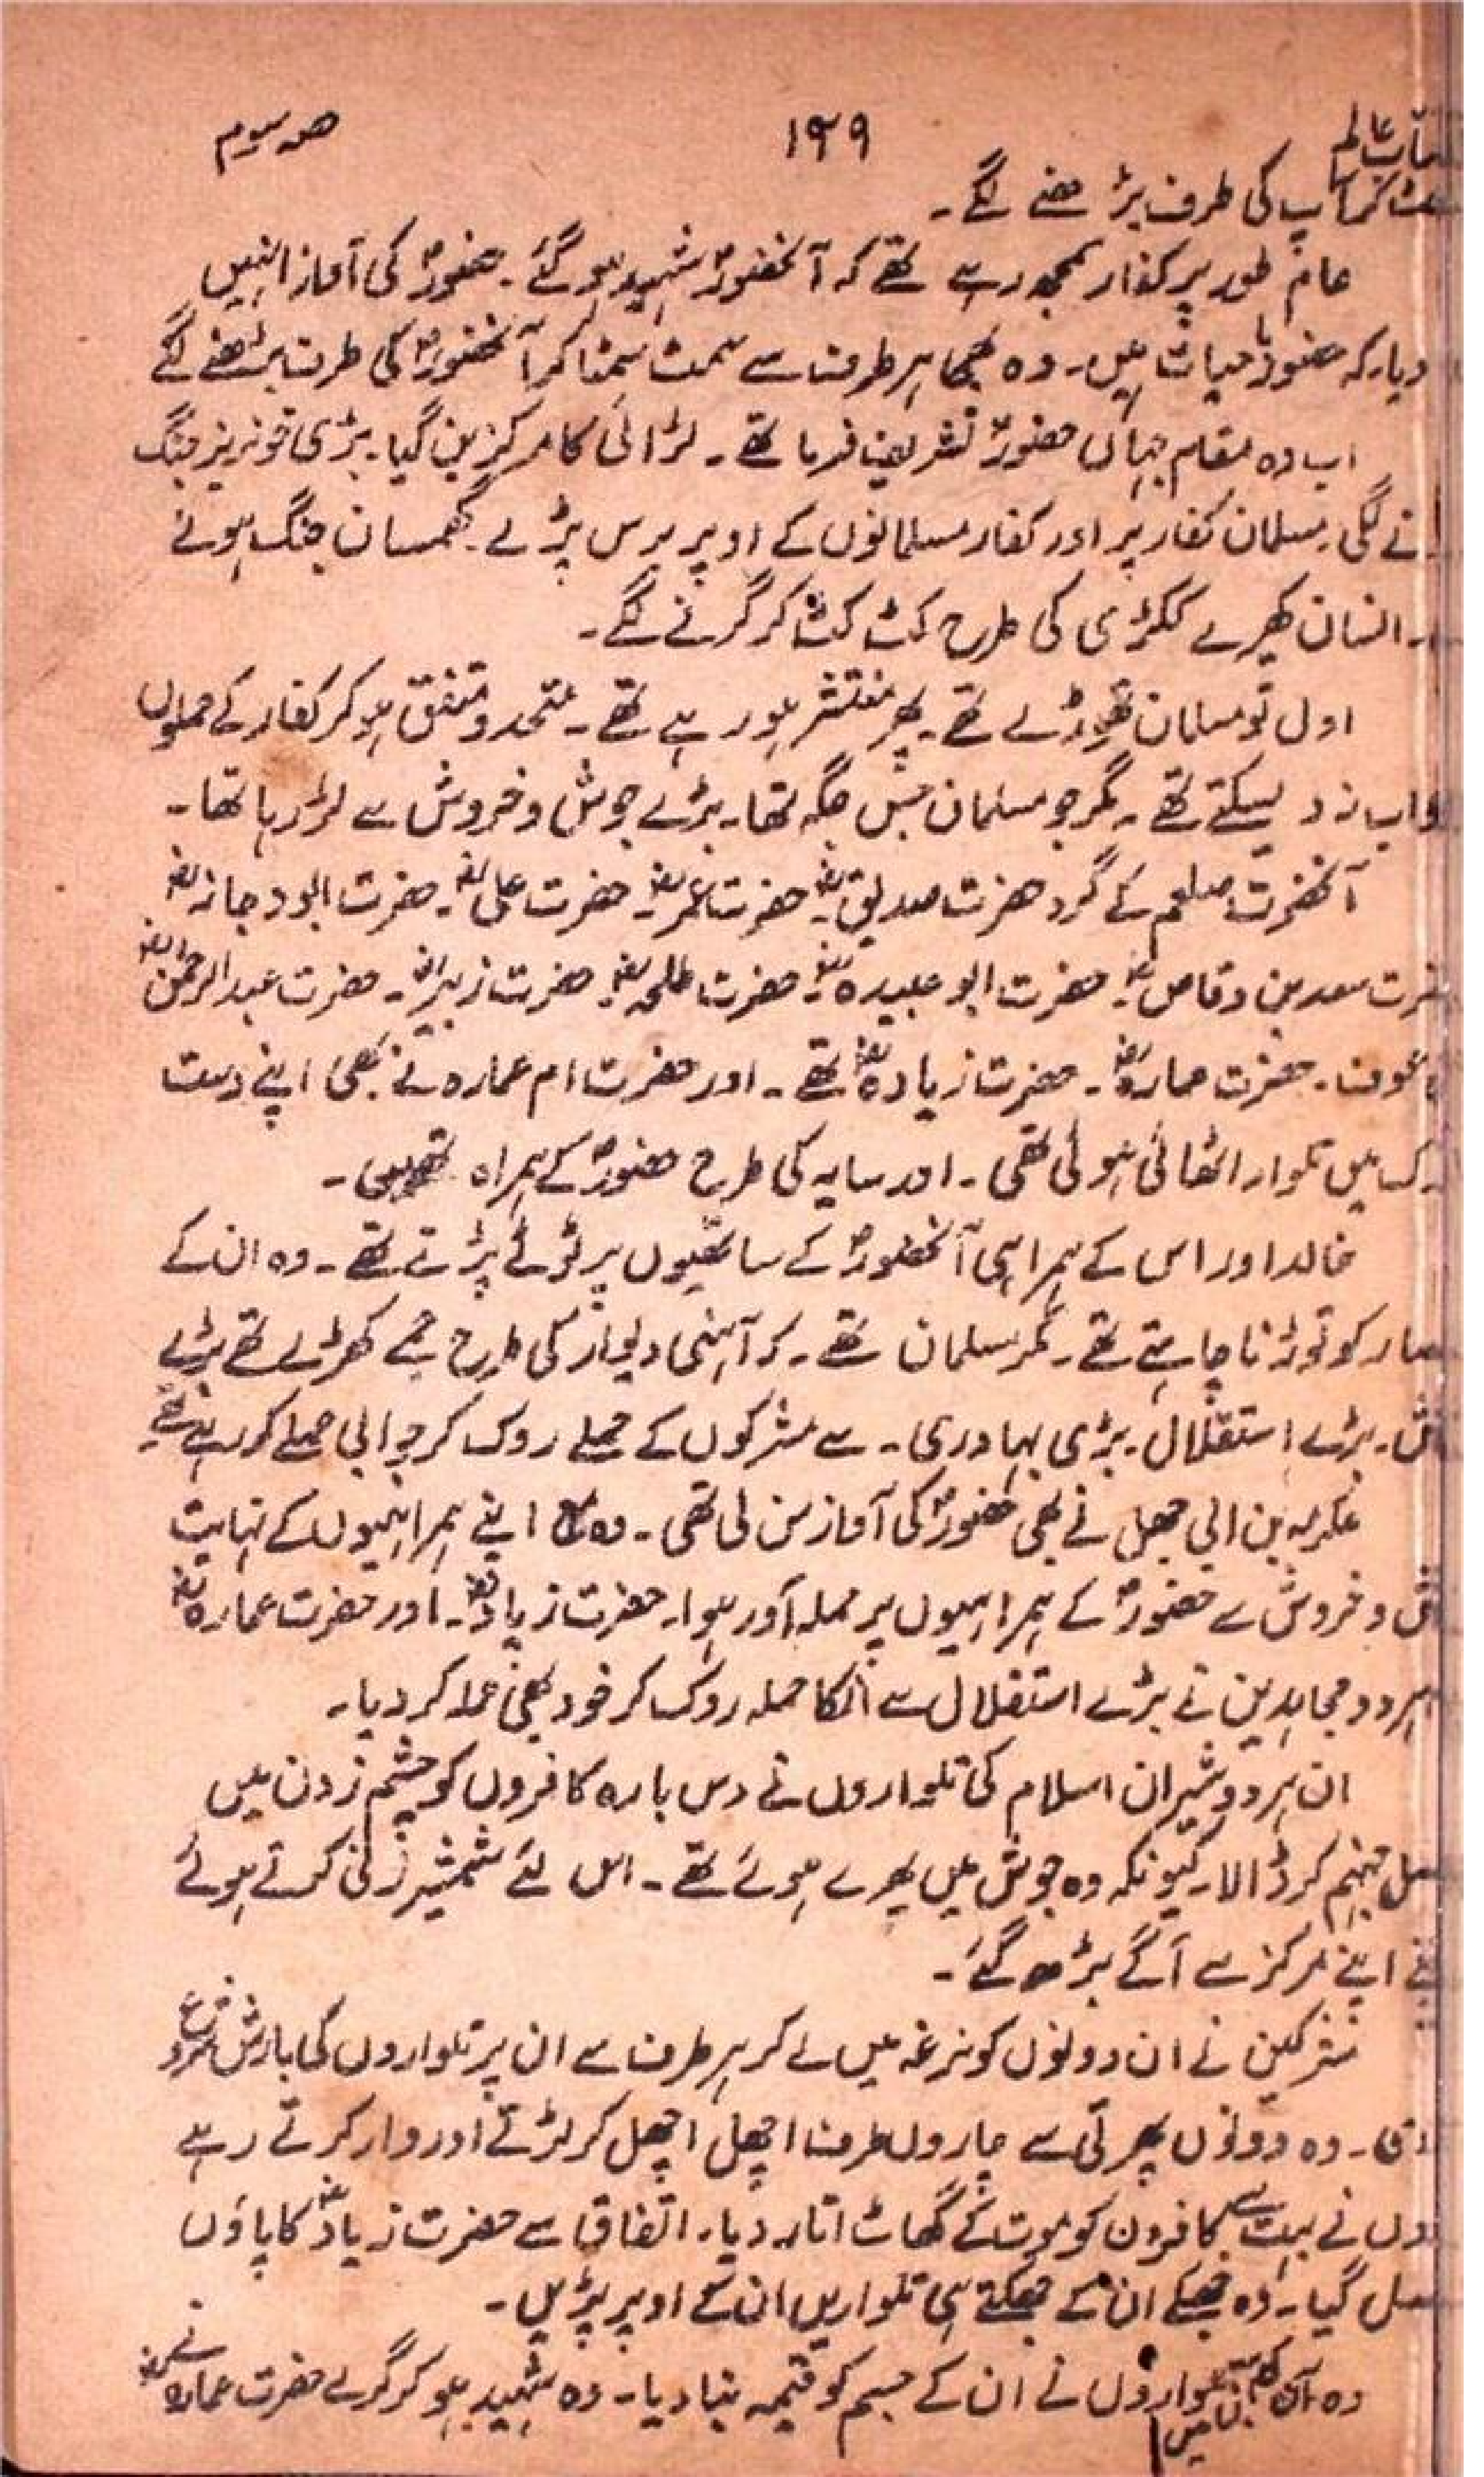 آفتاب عالم ۱۹۹ حصہ سوم
کر آپ کی طرف بڑھنے لگے۔
عام طور پر کفار سمجھ رہے تھے کہ آنحضورؐ شہید ہو گئے۔ حضورؐ کی آواز انہیں
دیا۔ کہ حضورؐ باحیات ہیں۔ وہ بھی ہر طرف سے سمٹ سمٹا کر آنحضورؐ کی طرف بڑھنے لگے
اب وہ مقام جہاں حضورؐ تشریف فرما تھے۔ لڑائی کا مرکز بن گیا۔ بڑی خونریز جنگ
نے لگی۔ مسلمان کفار پر اور کفار مسلمانوں کے اوپر برس پڑے۔ گھمسان جنگ ہونے
انسان کھیرے ککڑی کی طرح کٹ کٹ کر گرنے لگے۔
اول تو مسلمان تھوڑے تھے۔ پھر منتشر ہو رہے تھے۔ متحد و متفق ہو کر کفار کے حملوں
واب نہ دے سکتے تھے۔ مگر جو مسلمان جس جگہ تھا۔ بڑے جوش و خروش سے لڑ رہا تھا۔
آنحضرت صلعم کے گرد حضرت صدیقؓ۔ حضرت عمرؓ۔ حضرت علیؓ۔ حضرت ابودجانہؓ
حضرت سعد بن وقاصؓ۔ حضرت ابو عبیدہؓ۔ حضرت طلحہؓ۔ حضرت زبیرؓ۔ حضرت عبدالرحمٰنؓ
عوف۔ حضرت عمارہؓ۔ حضرت زیادہؓ تھے۔ اور حضرت ام عمارہ نے بھی اپنے دست
میں تلوار اٹھائی ہوئی تھی۔ اور سایہ کی طرح حضورؐ کے ہمراہ تھیں۔
خالد اور اس کے ہمراہی آنحضورؐ کے ساتھیوں پر ٹوٹے پڑتے تھے۔ وہ ان کے
صار کو توڑنا چاہتے تھے۔ مگر مسلمان تھے۔ کہ آہنی دیوار کی طرح جمے کھڑے تھے بڑے
بڑے استقلال۔ بڑی بہادری۔ سے مشرکوں کے حملے روک کر جوابی حملے کر رہے تھے۔
عکرمہ بن ابی جہل نے بھی حضورؐ کی آواز سن لی تھی۔ وہ مع اپنے ہمراہیوں کے نہایت
و خروش سے حضورؐ کے ہمراہیوں پر حملہ آور ہوا۔ حضرت زیادؓ۔ اور حضرت عمارہؓ
ہر دو مجاہدین نے بڑے استقلال سے انکا حملہ روک کر خود بھی حملہ کر دیا۔
ان ہر دو شیران اسلام کی تلواروں نے دس بارہ کافروں کو چشم زدن میں
جہنم کر ڈالا۔ کیونکہ وہ جوش میں بھرے ہوئے تھے۔ اس لئے شمشیر زنی کرتے ہوئے
اپنے مرکز سے آگے بڑھ گئے۔
مشرکین نے ان دونوں کو نرغہ میں لے کر ہر طرف سے ان پر تلواروں کی بارش شروع
وہ دونوں پھرتی سے چاروں طرف اچھل اچھل کر لڑتے اور وار کرتے رہے
نے بہت سے کافروں کو موت کے گھاٹ اتار دیا۔ اتفاق سے حضرت زیادؓ کا پاؤں
گیا۔ وہ جھکے ان کے جھکتے ہی تلواریں ان کے اوپر پڑیں۔
تلواروں نے ان کے جسم کو قیمہ بنا دیا۔ وہ شہید ہو کر گرے حضرت عمارہؓ نے